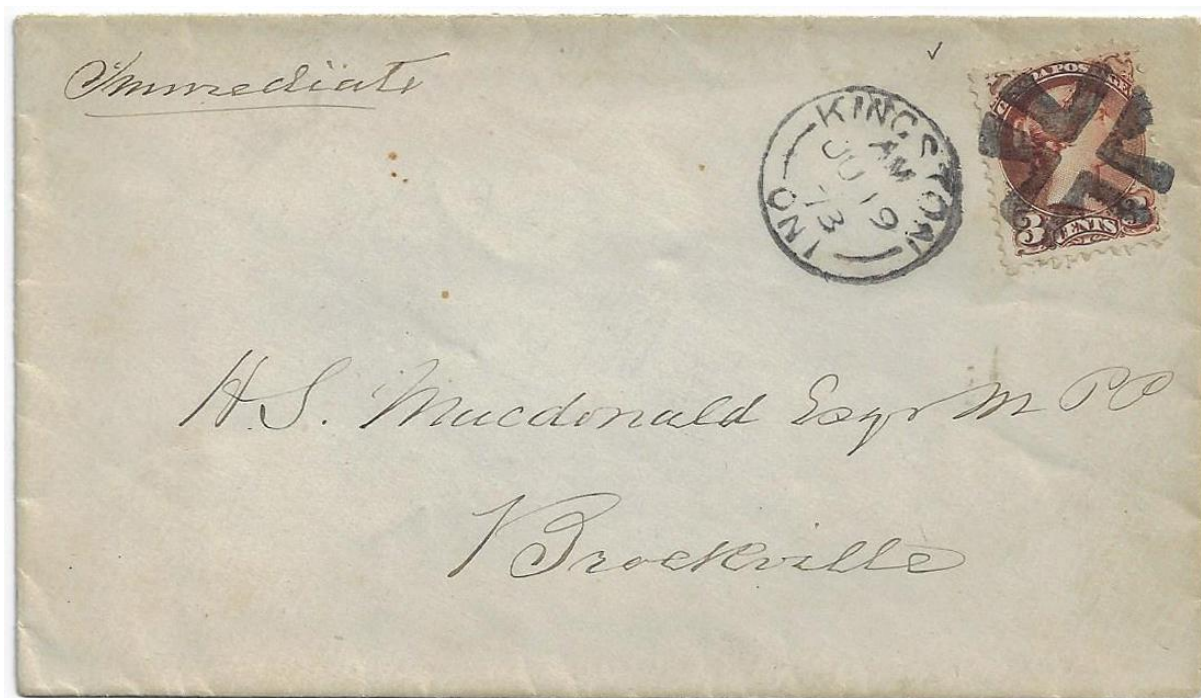 Immediate
KINGSTON
AM
JU 19
73
ONT
A POSTAGE
3 CENTS 3
H. S. Macdonald Esqr M P P
Brockville